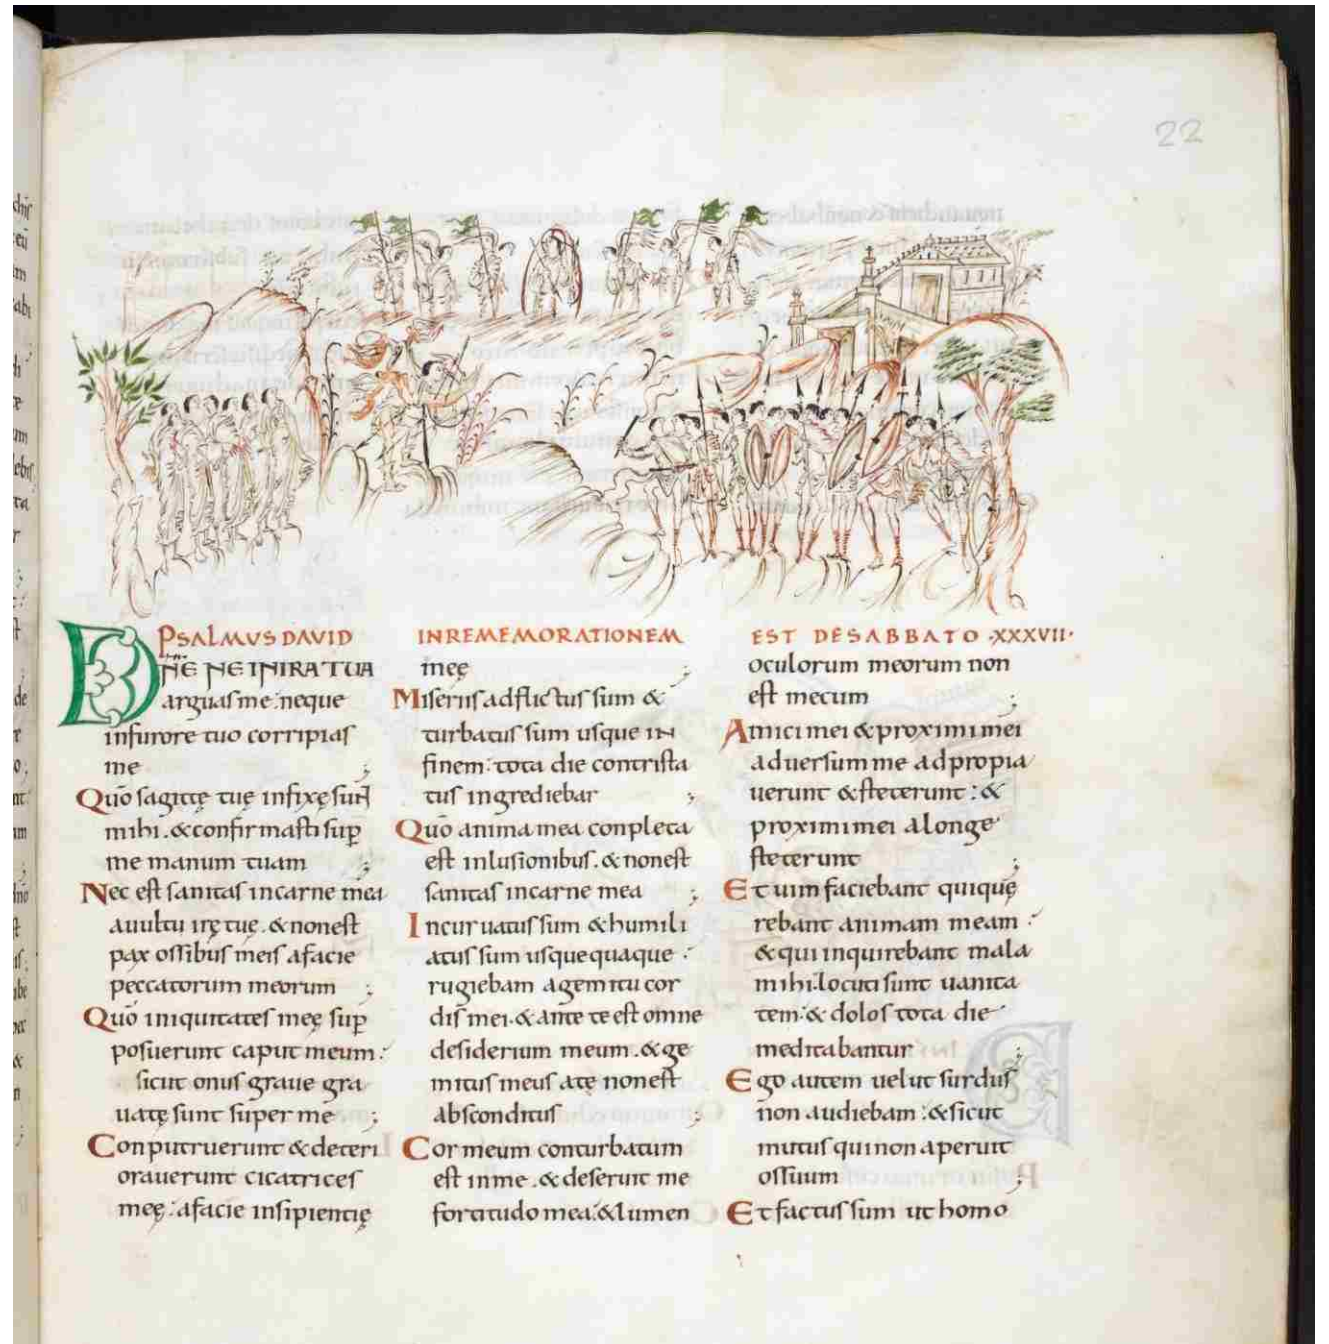 22
PSALMUS DAVID
DÑE NE IN IRA TUA
arguas me: neque
in furore tuo corripias
me ;
Quō sagittę tuę infixę sunt
mihi. & confirmasti sup̄
me manum tuam ;
Nec est sanitas in carne mea
a uultu irę tuę. & non est
pax ossibus meis a facie
peccatorum meorum ;
Quō iniquitates meę sup̄
posuerunt caput meum:
sicut onus graue gra
uatę sunt super me ;
Conputruerunt & deteri
orauerunt cicatrices
meę: a facie insipientię
IN REMEMORATIONEM
meę ;
Miseriis adflictus sum &
turbatus sum usque in
finem: tota die contrista
tus ingrediebar ;
Quō anima mea conpleta
est inlusionibus. & non est
sanitas in carne mea ;
Incuruatus sum & humili
atus sum usquequaque:
rugiebam a gemitu cor
dis mei. & ante te est omne
desiderium meum. & ge
mitus meus a tę non est
absconditus ;
Cor meum conturbatum
est in me. & deseruit me
fortitudo mea: & lumen
EST DE SABBATO ·XXXVII·
oculorum meorum non
est mecum ;
Amici mei & proximi mei
aduersum me adpropia
uerunt & steterunt: &
proximi mei a longe
steterunt ;
Et uim faciebant qui quę
rebant animam meam:
& qui inquirebant mala
mihi. locuti sunt uanita
tem: & dolos tota die
meditabantur ;
Ego autem uelut surdus
non audiebam: & sicut
mutus qui non aperuit
os suum ;
Et factus sum ut homo